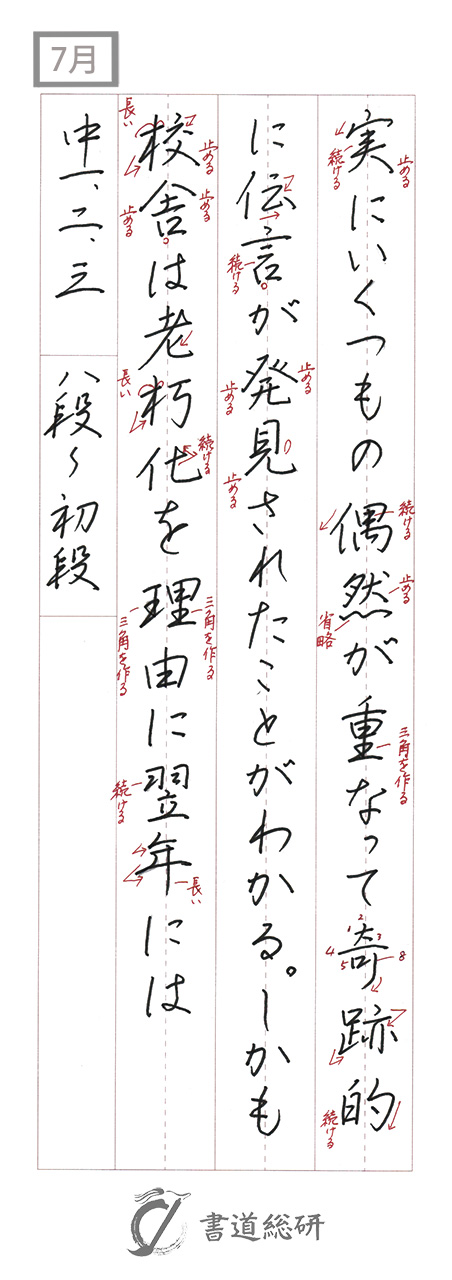 7月
実にいくつもの偶然が重なって奇跡的
に伝言が発見されたことがわかる。しかも
校舎は老朽化を理由に翌年には
中一、二、三 八段〜初段
止める
続ける
続ける
止める
省略
三角を作る
2
3
4
5
8
続ける
止める
続ける
止める
止める
止める
長い
止める
止める
長い
続ける
三角を作る
三角を作る
続ける
長い
書道総研